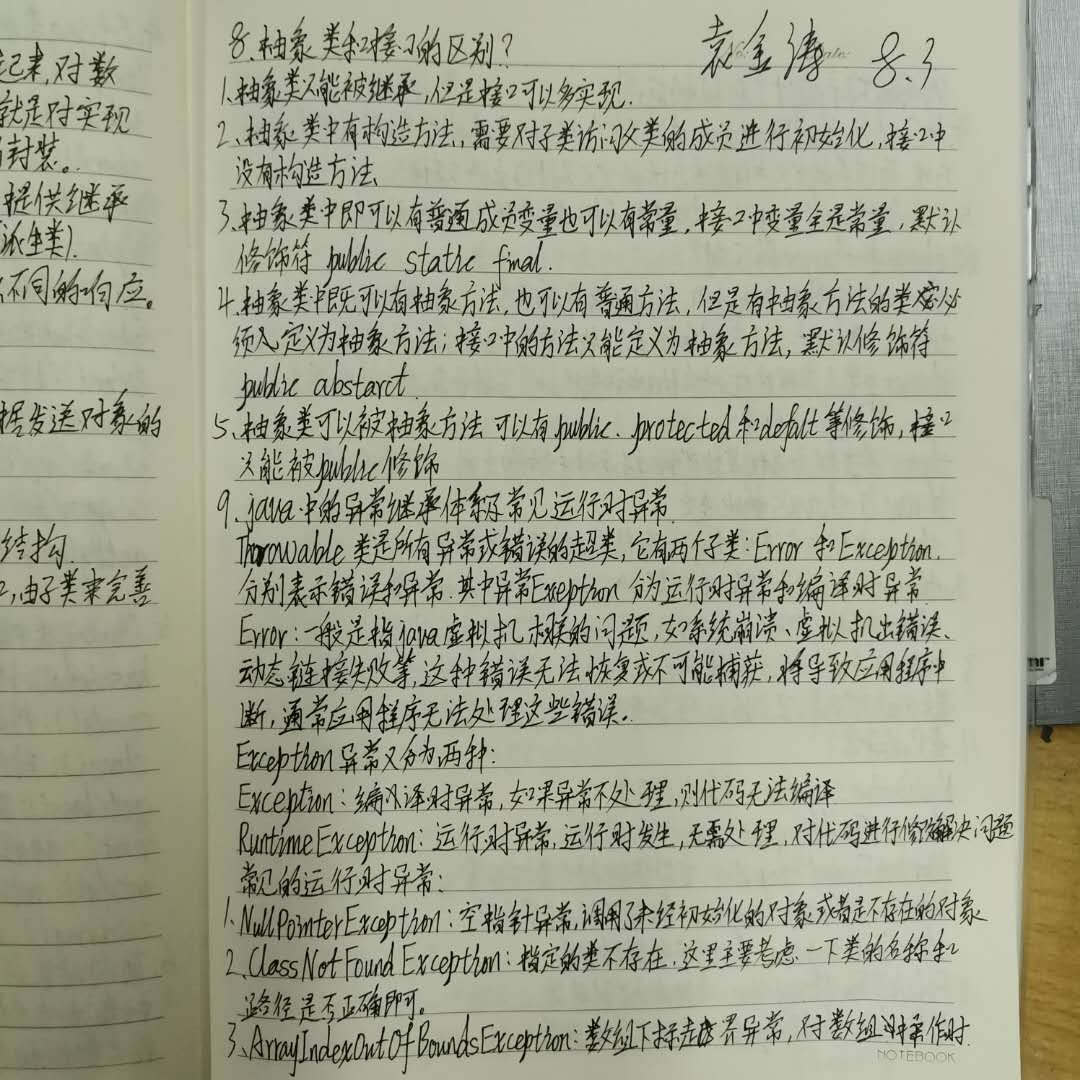 起来,对数
就是对实现
封装。
提供继承
派生类).
不同的响应。
据发送对象的
结构.
,由子类来完善
8.抽象类和接口的区别?
袁金涛 8.3
1、抽象类只能被继承,但是接口可以多实现.
2、抽象类中有构造方法,需要对子类访问父类的成员进行初始化,接口中
没有构造方法
3、抽象类中即可以有普通成员变量也可以有常量,接口中变量全是常量,默认
修饰符 public static final.
4、抽象类中既可以有抽象方法,也可以有普通方法,但是有抽象方法的类必
须入定义为抽象方法;接口中的方法只能定义为抽象方法,默认修饰符
public abstarct.
5、抽象类可以被抽象方法 可以有public、protected和defalt等修饰,接口
只能被public修饰
9、java中的异常继承体系及常见运行时异常.
Thorowable 类是所有异常或错误的超类,它有两个子类:Error和Exception.
分别表示错误和异常.其中异常Exseption 分为运行时异常和编译时异常
Error:一般是指java虚拟机相关的问题,如系统崩溃、虚拟机出错误、
动态链接失败等,这种错误无法恢复或不可能捕获,将导致应用程序中
断,通常应用程序无法处理这些错误。
Exception异常又分为两种:
Exception:编译时异常,如果异常不处理,则代码无法编译
RuntimeException:运行时异常,运行时发生,无需处理,对代码进行修解决问题
常见的运行时异常:
1、NullPointerException:空指针异常,调用了未经初始化的对象或者是不存在的对象
2、ClassNotFoundException:指定的类不存在.这里主要考虑一下类的名称和
路径是否正确即可。
3、ArrayIndexOutOfBoundsException:数组下标走界异常,对数组操作时.
NOTEBOOK